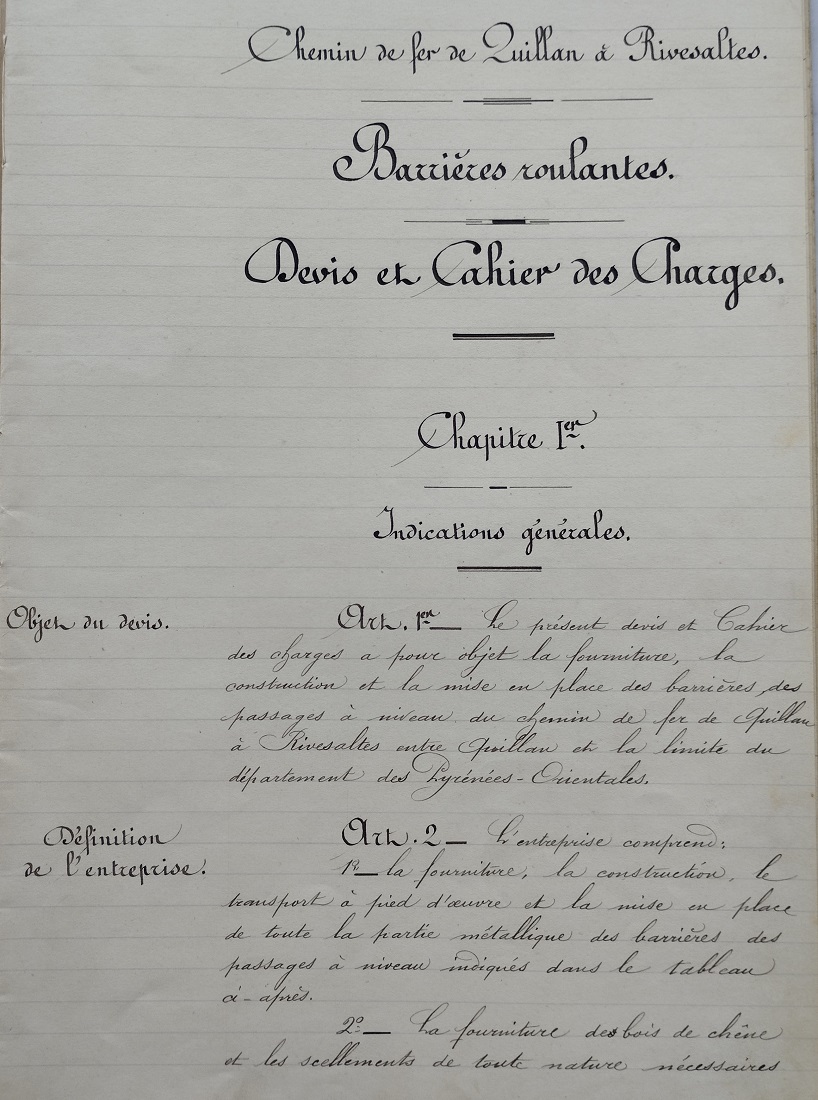 Chemin de fer de Quillan à Rivesaltes.
Barrières roulantes.
Devis et Cahier des Charges.
Chapitre Ier.
Indications générales.
Objet du devis.
Art. 1er — Le présent devis et Cahier
des charges a pour objet la fourniture, la
construction et la mise en place des barrières des
passages à niveau du chemin de fer de Quillan
à Rivesaltes entre Quillan et la limite du
département des Pyrénées-Orientales.
Définition
de l'entreprise.
Art. 2 — L'entreprise comprend:
1º — la fourniture, la construction, le
transport à pied d'œuvre et la mise en place
de toute la partie métallique des barrières des
passages à niveau indiqués dans le tableau
ci-après.
2º — La fourniture des bois de chêne
et les scellements de toute nature nécessaires